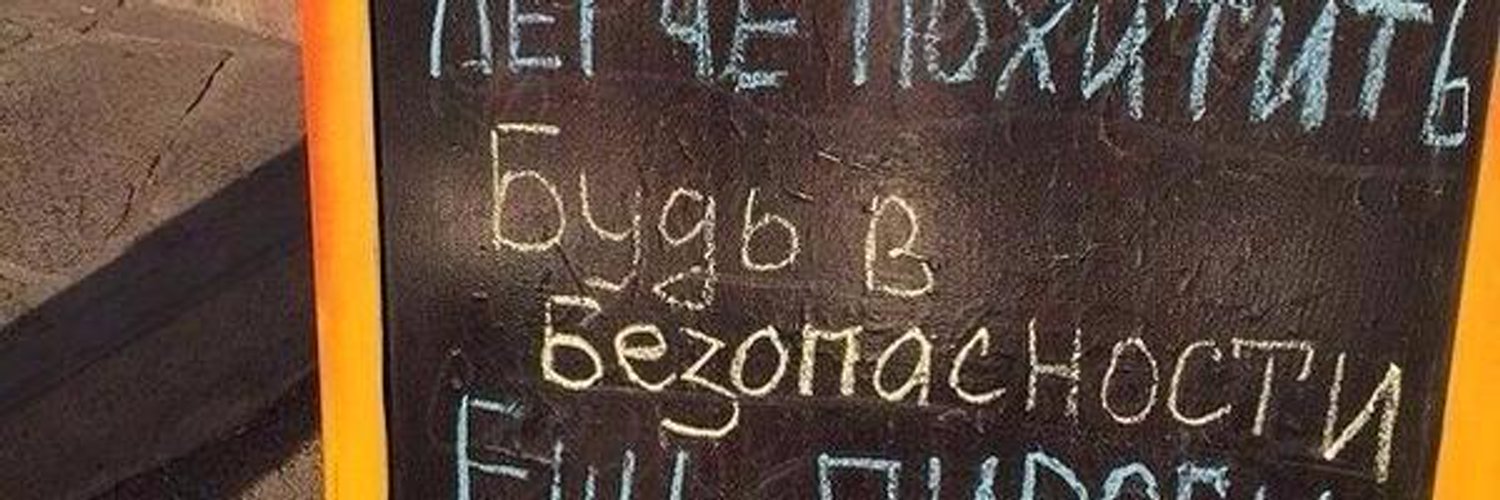 ЛЕГЧЕ ПОХИТИТЬ
Будь в
Безопасности
ЕШЬ ПИРОГИ